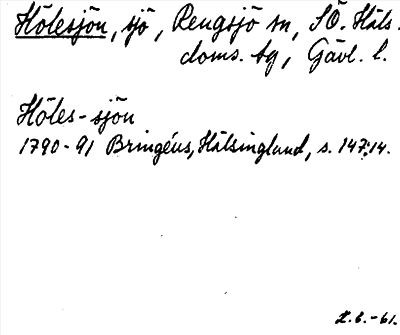 Hölesjön, sjö, Rengsjö sn, SÖ. Häls.
doms. sg, Gävl. l.
Höles-sjön
1790-91 Bringéus, Hälsingland, s. 147:14.